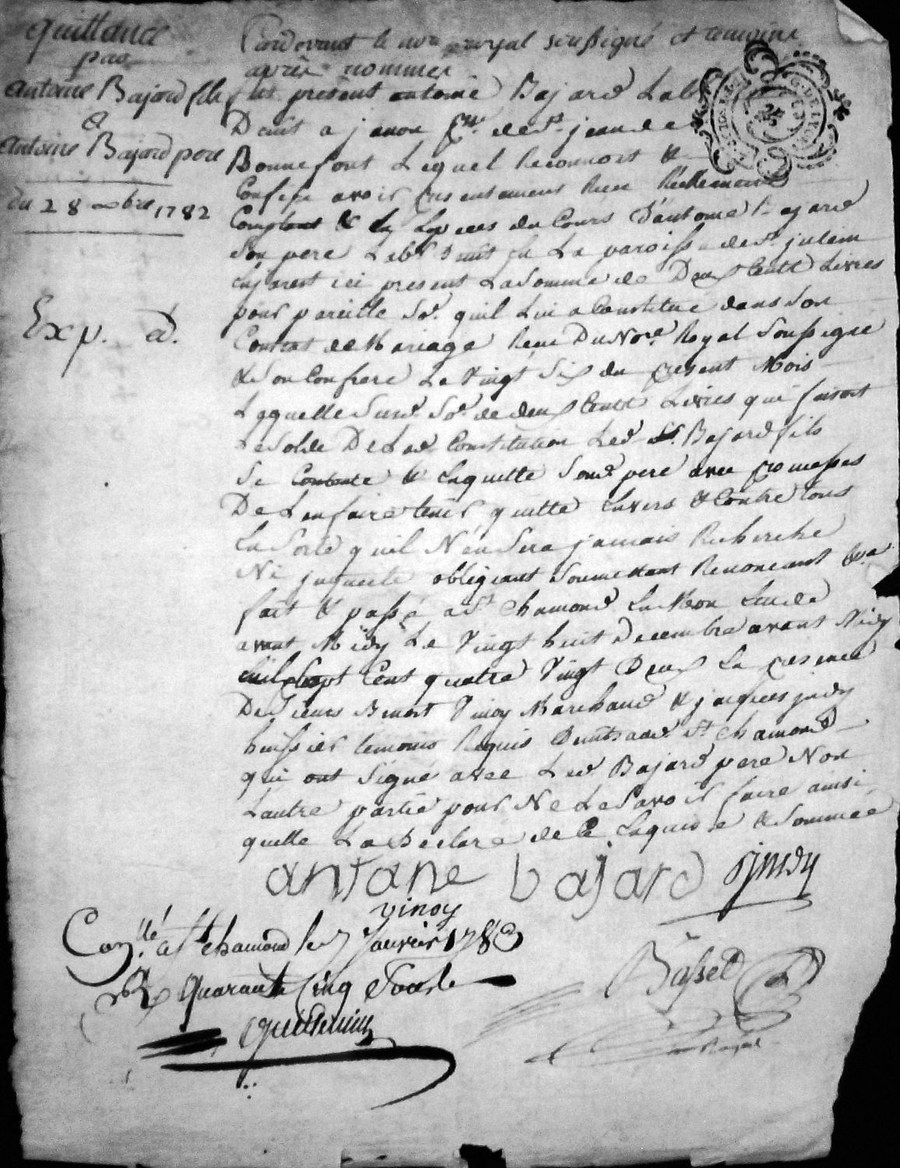 quittance
par
Antoine Bajard fils
&
Antoine Bajard pere
du 28 xbre 1782
Exp. d.
Pardevant le nore royal soussigné et temoins
après nommes
fut present antoine Bajard Lab
Dmt a janon de st jean de
Bonnefont Lequel Reconnoit &
Confesse avoir presentament Receu Reellement
Comptant & En Especes du Cours D'antoine Bajard
Son pere Labr Dmt En La paroisse de st julien
Enjarest ici present La Somme de Deux Cent Livres
pour pareille Se. quil Lui a Constitué dans Son
Contrat de Mariage Receu Du Nore. Royal Soussigné
& Son Confrere Le Vingt Six du present Mois
Laquelle Susd. Se. de deux Cent Livres qui faisoit
Le Solde De Lad. Constitution Led. Sr. Bajard fils
Se Contente & En quitte Sond. pere avec promesses
De Len faire tenir quitte Envers & Contre tous
En Sorte quil N'en Sera jamais Recherché
Ni jnquieté obligeant Soumettant Renoncant &a
fait & passé a st. chamond En Mon Etude
avant Midy Le Vingt huit Decembre avant Midy
mil Sept Cent quatre Vingt Deux En presence
De Sieurs Benoit Vinoy Marchand & jacques
huissier temoins Requis Dmts aud. st chamond
qui ont Signé avec Led. Bajard pere Non
Lautre partie pour Ne Le Savoir faire ainsi
quelle La Declaré de Ce Enquise & Sommée
antane bajard
vinoy
Conllé a st chamond le 7 Janvier 1783
R quarante Cinq Sous
Basset
Royal